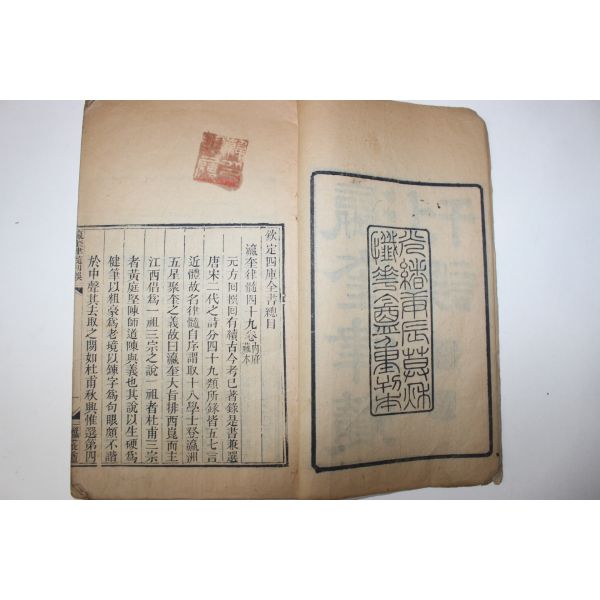 光緒庚辰莫秋
懺華盦重刊本
欽定四庫全書總目
瀛奎律髓四十九卷內府藏本
元方回撰回有續古今考已著錄是書兼選
唐宋二代之詩分四十九類所錄皆五七言
近體故名律髓自序謂取十八學士登瀛洲
五星聚奎之義故曰瀛奎大旨排西崑而主
江西倡爲一祖三宗之說一祖者杜甫三宗
者黃庭堅陳師道陳與義也其說以生硬爲
健筆以粗豪爲老境以鍊字爲句眼頗不諧
於中聲其去取之閒如杜甫秋興惟選第四
瀛奎律髓刊誤